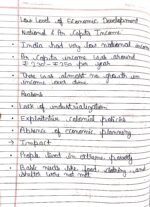 Low Level of Economic Development
National & Per Capita Income
• India had very low national income
• Per Capita income was around
₹ 230 - ₹ 250 per year.
• There was almost no growth in
income over time
Reasons
• Lack of industrialization
• Exploitative colonial policies
• Absence of economic planning
→ Impact
• People lived in extreme poverty
• Basic needs like food, clothing, and
shelter were not met